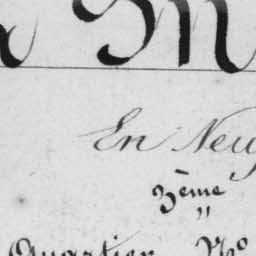 M
En Neu
3ème
"
Quartier No